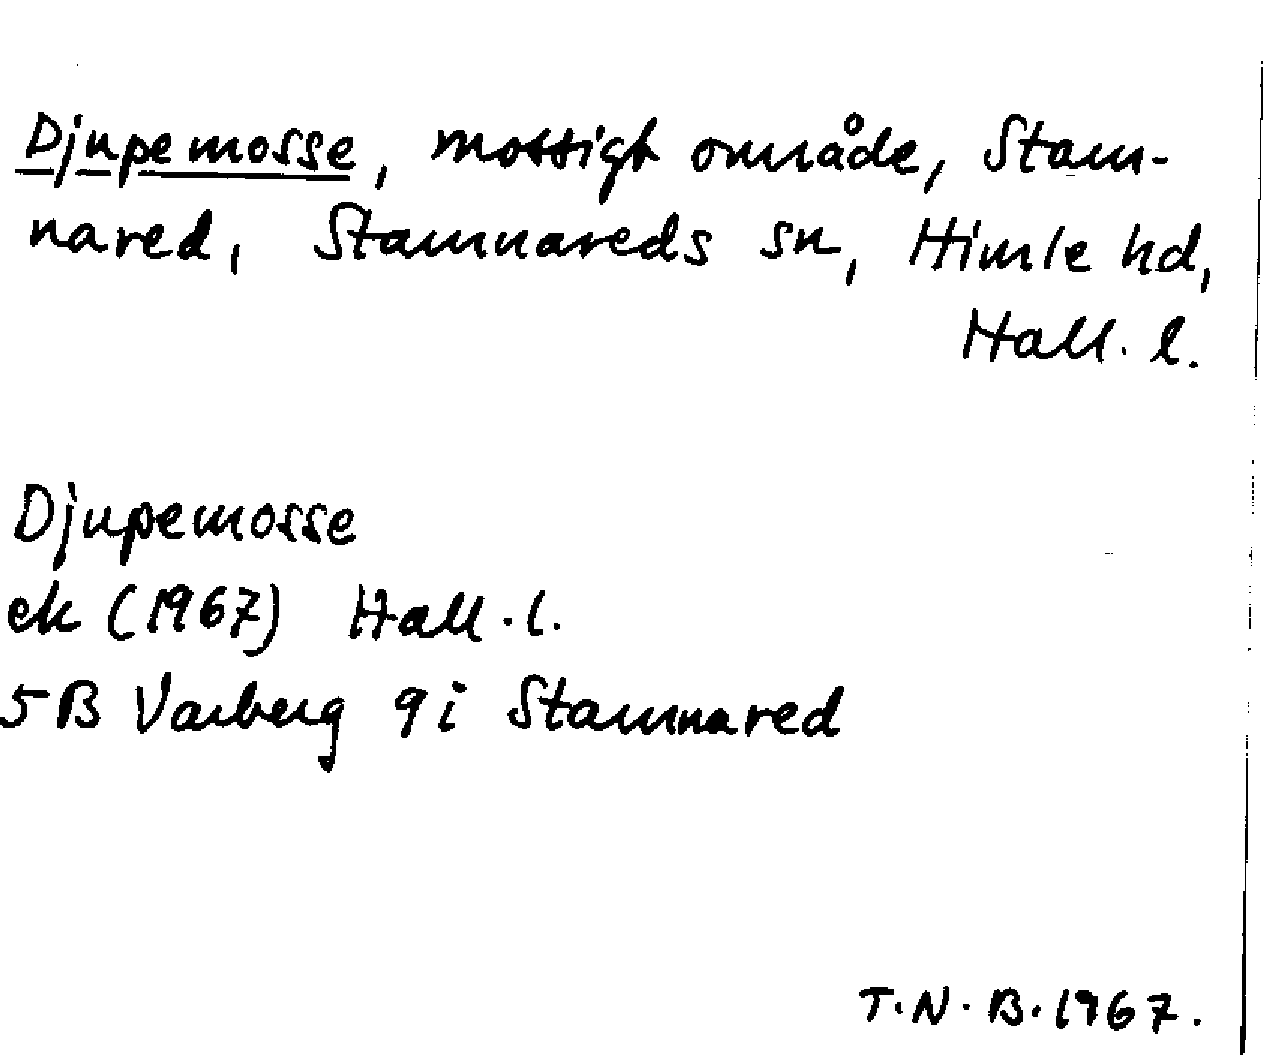 Djupemosse, mossigt område, Stam-
nared, Stamnareds sn, Himle hd,
Hall. l.
Djupemosse
ek (1967) Hall. l.
5B Varberg 9i Stamnared
T.N.B. 1967.